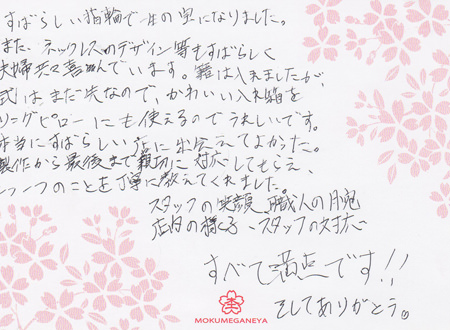 すばらしい指輪で一生の宝になりました。
また、ネックレスのデザイン等もすばらしく
夫婦共々喜んでいます。籍は入れましたが、
式はまだ先なので、かわいい入れ箱を
リングピローにも使えるのでうれしいです。
本当にすばらしい店に出会えてよかった。
製作から最後まで親切に対応してもらえ、
一つ一つのことを丁寧に教えてくれました。
スタッフの笑顔、職人の腕
店内の様子、スタッフの対応
すべて満点です!!
そしてありがとう。
MOKUMEGANEYA